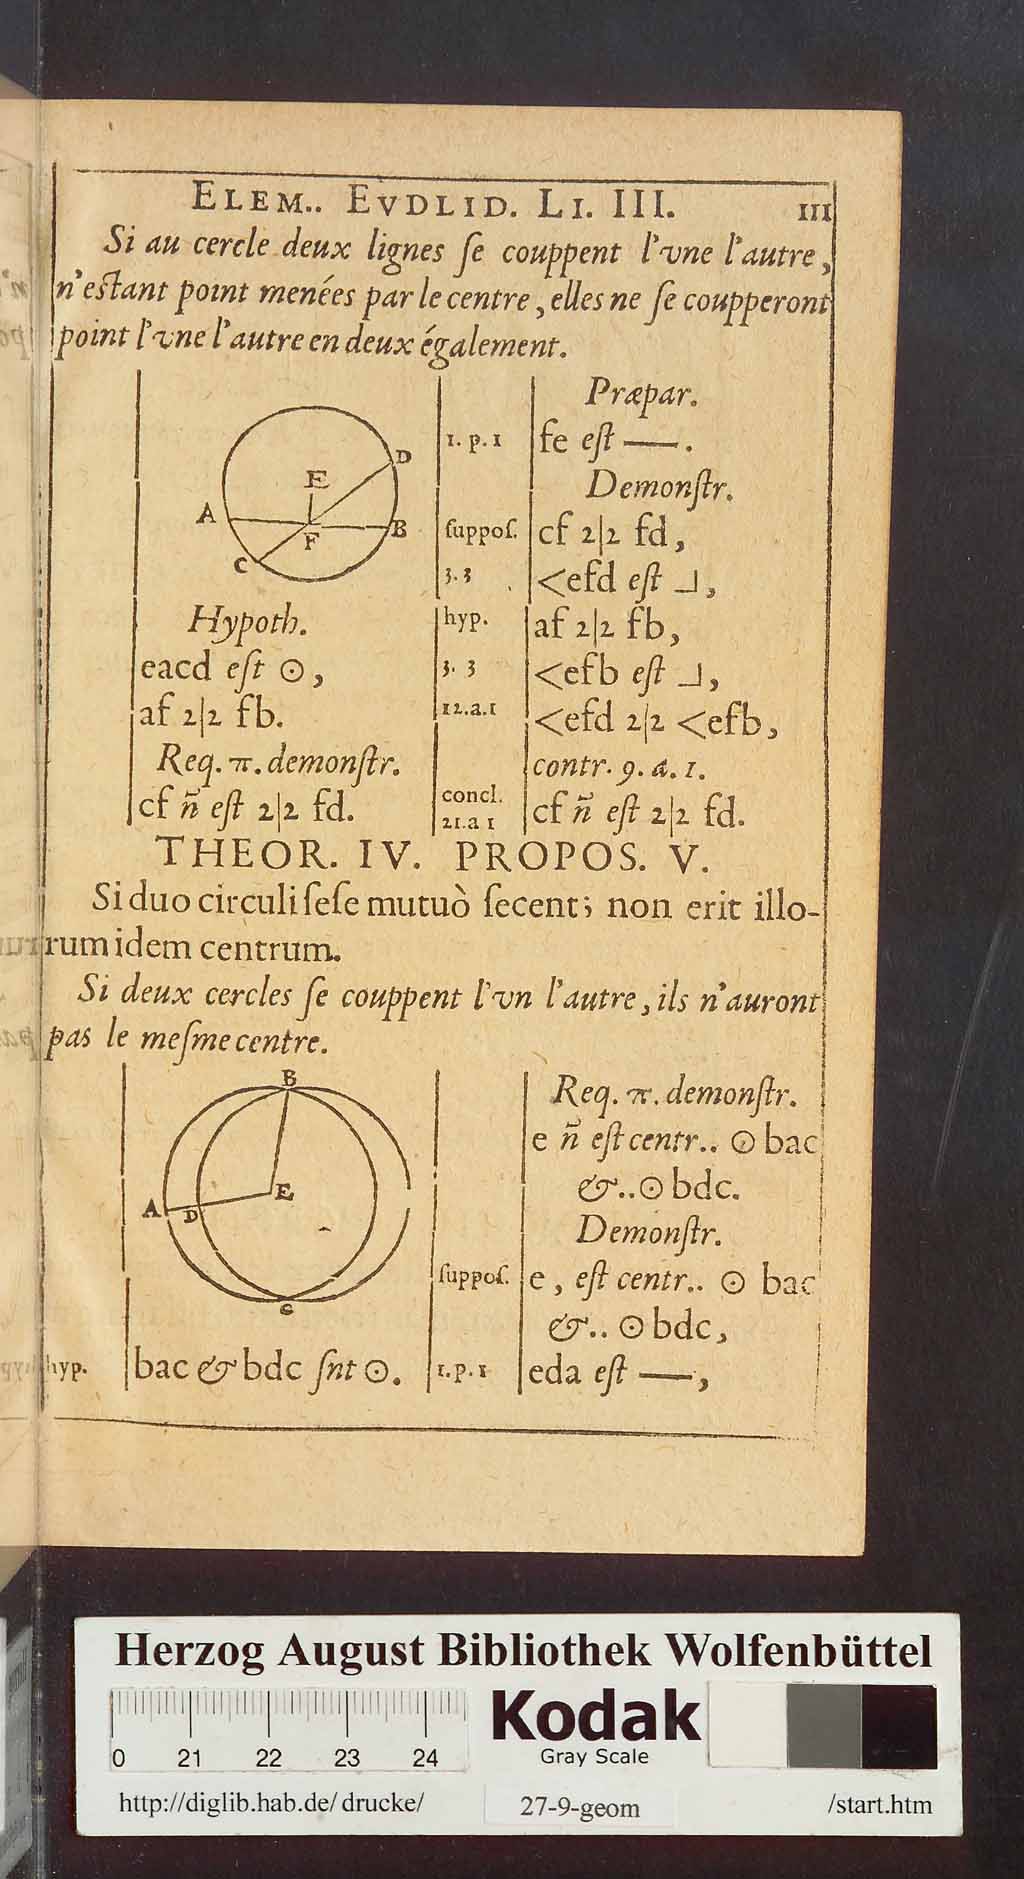 ELEM.. EVDLID. LI. III. III
Si au cercle deux lignes ſe couppent l'vne l'autre,
n'eſtant point menées par le centre, elles ne ſe coupperont
point l'vne l'autre en deux également.
D
E
A
B
F
C
Hypoth.
eacd eſt ⊙,
af 2|2 fb.
Req. π. demonſtr.
cf n̄ eſt 2|2 fd.
Præpar.
1. p. 1 fe eſt —.
Demonſtr.
ſuppoſ. cf 2|2 fd,
3. 3 <efd eſt ⅃,
hyp. af 2|2 fb,
3. 3 <efb eſt ⅃,
12.a.1 <efd 2|2 <efb,
contr. 9. a. 1.
concl.
21.a 1 cf n̄ eſt 2|2 fd.
THEOR. IV. PROPOS. V.
Si duo circuli ſeſe mutuò ſecent; non erit illo-
rum idem centrum.
Si deux cercles ſe couppent l'vn l'autre, ils n'auront
pas le meſme centre.
B
E
A D
C
hyp. bac & bdc ſnt ⊙.
Req. π. demonſtr.
e n̄ eſt centr.. ⊙ bac
&.. ⊙ bdc.
Demonſtr.
ſuppoſ. e, eſt centr.. ⊙ bac
&.. ⊙ bdc,
1. p. 1 eda eſt —,
Herzog August Bibliothek Wolfenbüttel
0 21 22 23 24
Kodak
Gray Scale
http://diglib.hab.de/drucke/ 27-9-geom /start.htm